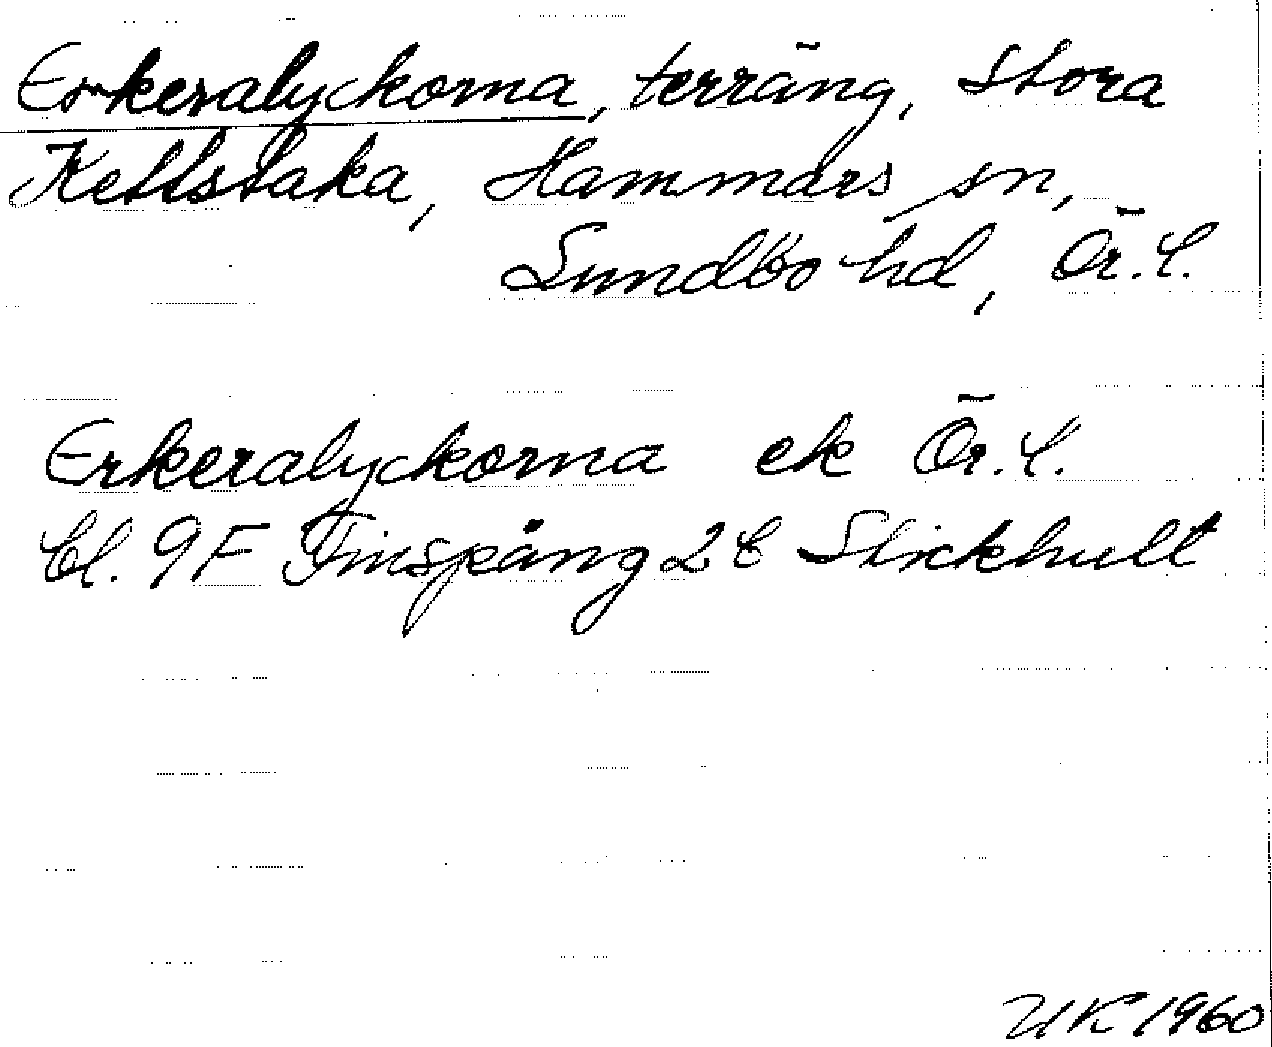 Erkeralyckorna, terräng, Stora
Kettstaka, Hammars sn,
Sundbo hd, Ör.l.
Erkeralyckorna ek Ör.l.
bl. 9F Finspång 2 c Stickhult
UK 1960